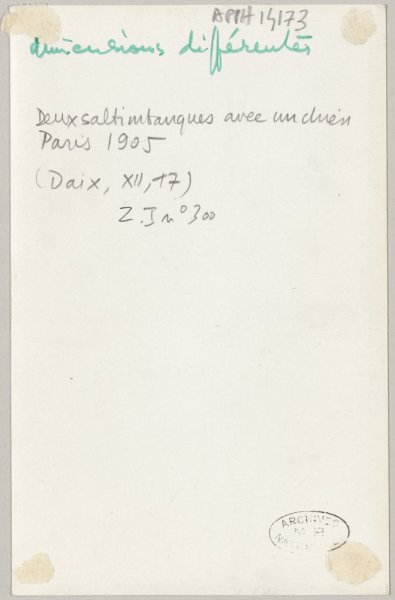 APPH 14173
dimensions différentes
Deux saltimbanques avec un chien
Paris 1905
(Daix, XII, 17)
Z. I n° 300
ARCHIVES